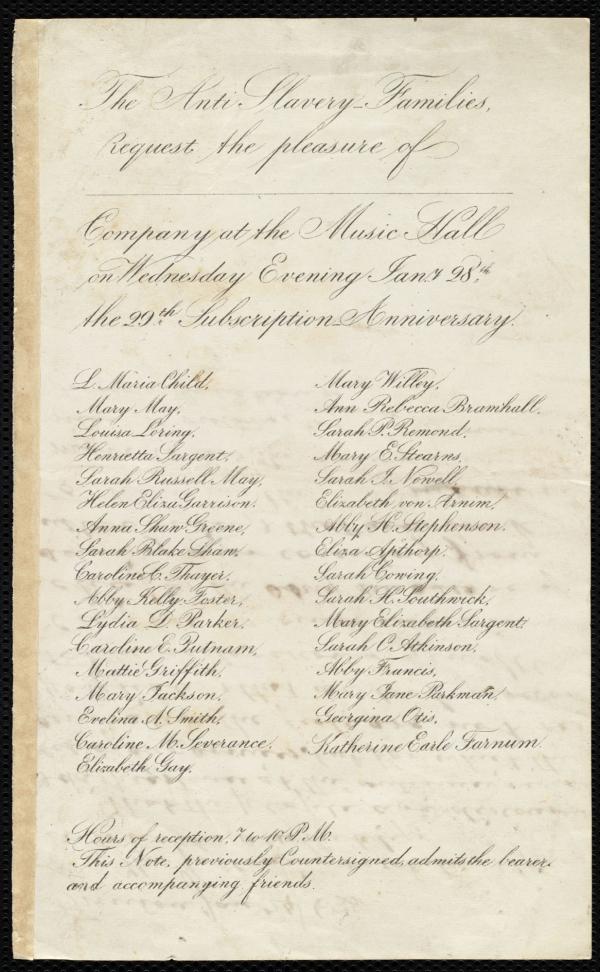 The Anti Slavery Families,
request the pleasure of
Company at the Music Hall
on Wednesday Evening Jany 28th
the 29th Subscription Anniversary.
L. Maria Child,
Mary May,
Louisa Loring,
Henrietta Sargent,
Sarah Russell May,
Helen Eliza Garrison,
Anna Shaw Greene,
Sarah Blake Shaw,
Caroline C. Thayer,
Abby Kelly Foster,
Lydia D. Parker,
Caroline E. Putnam,
Mattie Griffith,
Mary Jackson,
Evelina A. Smith,
Caroline M. Severance,
Elizabeth Gay,
Mary Willey,
Ann Rebecca Bramhall,
Sarah P. Remond,
Mary E. Stearns,
Sarah J. Nowell,
Elizabeth von Arnim,
Abby H. Stephenson.
Eliza Apthorp,
Sarah Cowing,
Sarah H. Southwick,
Mary Elizabeth Sargent,
Sarah C. Atkinson,
Abby Francis,
Mary Jane Parkman,
Georgina Otis,
Katherine Earle Farnum.
Hours of reception, 7 to 10 P.M.
This Note, previously Countersigned, admits the bearer
and accompanying friends.